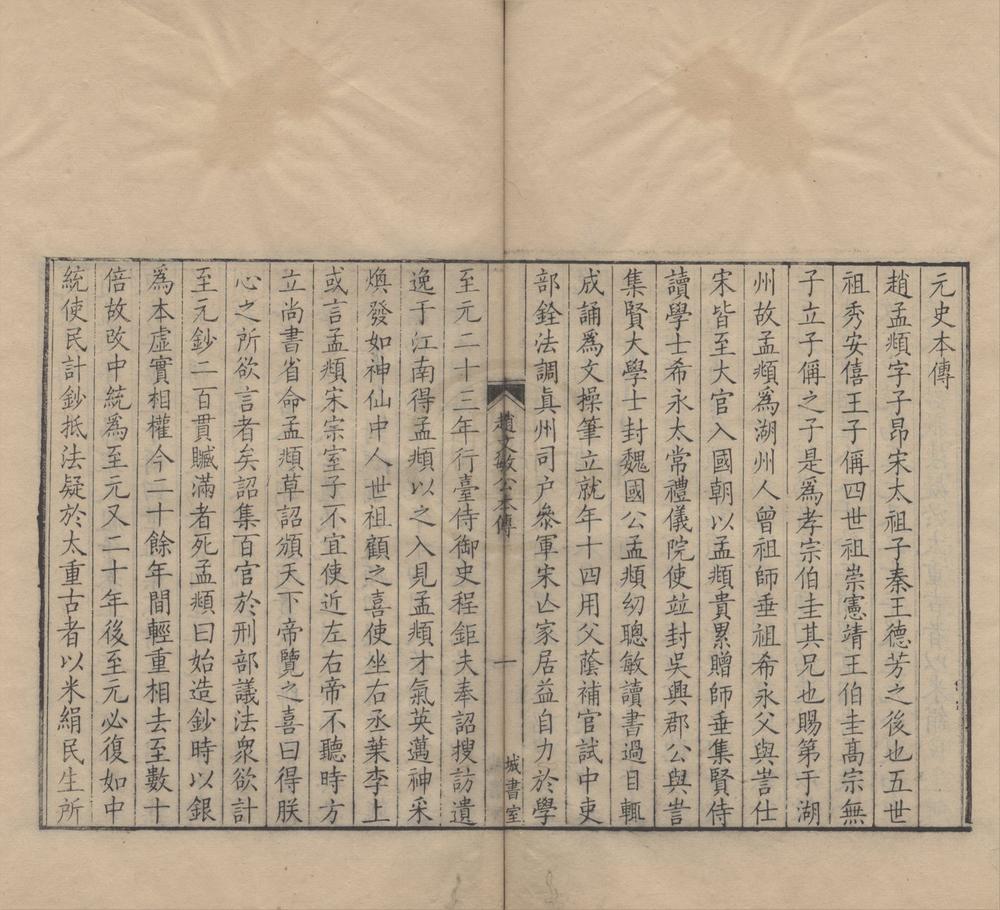 元史本傳
趙孟頫字子昂宋太祖子秦王德芳之後也五世
祖秀安僖王子偁四世祖崇憲靖王伯圭高宗無
子立子偁之子是為孝宗伯圭其兄也賜第于湖
州故孟頫為湖州人曾祖師垂祖希永父與訔仕
宋皆至大官入國朝以孟頫貴累贈師垂集賢侍
讀學士希永太常禮儀院使竝封吳興郡公與訔
集賢大學士封魏國公孟頫幼聰敏讀書過目輒
成誦為文操筆立就年十四用父蔭補官試中吏
部銓法調真州司户叅軍宋亾家居益自力於學
趙文敏公本傳
一
城書室
至元二十三年行臺侍御史程鉅夫奉詔搜訪遺
逸于江南得孟頫以之入見孟頫才氣英邁神采
煥發如神仙中人世祖顧之喜使坐右丞葉李上
或言孟頫宋宗室子不宜使近左右帝不聽時方
立尚書省命孟頫草詔頒天下帝覽之喜曰得朕
心之所欲言者矣詔集百官於刑部議法衆欲計
至元鈔二百貫贓滿者死孟頫曰始造鈔時以銀
為本虛實相權今二十餘年間輕重相去至數十
倍故改中統為至元又二十年後至元必復如中
統使民計鈔抵法疑於太重古者以米絹民生所